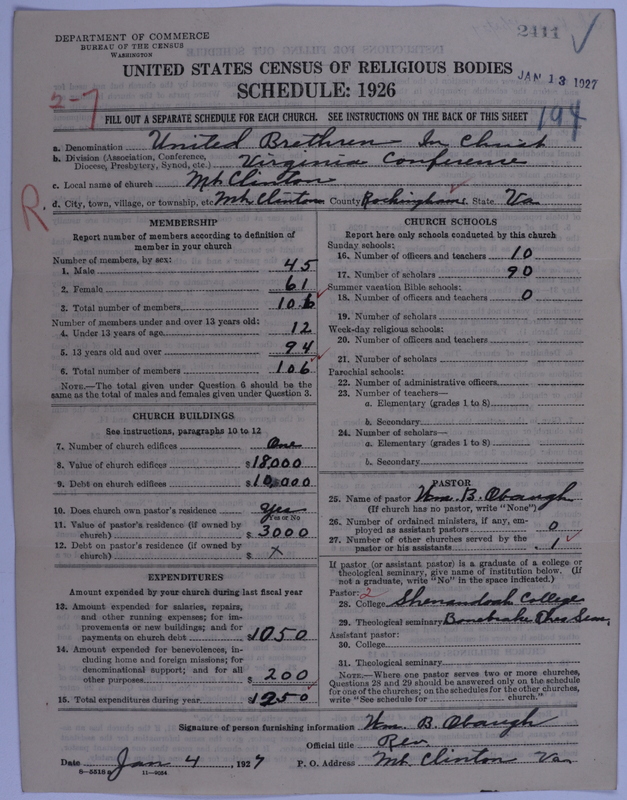 2411
DEPARTMENT OF COMMERCE
BUREAU OF THE CENSUS
WASHINGTON
UNITED STATES CENSUS OF RELIGIOUS BODIES
JAN 13 1927
SCHEDULE: 1926
2-7
FILL OUT A SEPARATE SCHEDULE FOR EACH CHURCH. SEE INSTRUCTIONS ON THE BACK OF THIS SHEET
194
a. Denomination United Brethren In Christ
b. Division (Association, Conference, Diocese, Presbytery, Synod, etc.) Virginia Conference
c. Local name of church Mt. Clinton
R
d. City, town, village, or township, etc. Mt. Clinton County Rockingham State Va
MEMBERSHIP
Report number of members according to definition of
member in your church
Number of members, by sex:
1. Male 45
2. Female 61
3. Total number of members 106
Number of members under and over 13 years old:
4. Under 13 years of age 12
5. 13 years old and over 94
6. Total number of members 106
NOTE.—The total given under Question 6 should be
same as the total of males and females given under Question 3.
CHURCH BUILDINGS
See instructions, paragraphs 10 to 12
7. Number of church edifices One
8. Value of church edifices $18,000
9. Debt on church edifices $10,000
10. Does church own pastor's residence? Yes
Yes or No
11. Value of pastor's residence (if owned by
church) $3000
12. Debt on pastor's residence (if owned by
church) $ x
EXPENDITURES
Amount expended by your church during last fiscal year
13. Amount expended for salaries, repairs,
and other running expenses; for im-
provements or new buildings; and for
payments on church debt $1050
14. Amount expended for benevolences, in-
cluding home and foreign missions; for
denominational support; and for all
other purposes $200
15. Total expenditures during year $1250
CHURCH SCHOOLS
Report here only schools conducted by this church
Sunday schools:
16. Number of officers and teachers 10
17. Number of scholars 90
Summer vacation Bible schools:
18. Number of officers and teachers 0
19. Number of scholars
Week-day religious schools:
20. Number of officers and teachers
21. Number of scholars
Parochial schools:
22. Number of administrative officers
23. Number of teachers—
a. Elementary (grades 1 to 8)
b. Secondary
24. Number of scholars—
a. Elementary (grades 1 to 8)
b. Secondary
PASTOR
25. Name of pastor Wm. B. Obaugh
(If church has no pastor, write "None")
26. Number of ordained ministers, if any, em-
ployed as assistant pastors 0
27. Number of other churches served by the
pastor or his assistants 1
If pastor (or assistant pastor) is a graduate of a college or
theological seminary, give name of institution below. (If
not a graduate, write "No" in the space indicated.)
Pastor: 2
28. College Shenandoah College
29. Theological seminary Bonebrake Theo Sem.
Assistant pastor:
30. College
31. Theological seminary
NOTE.—Where one pastor serves two or more churches,
Questions 28 and 29 should be answered only on the schedule
for one of the churches; on the schedules for the other churches,
write "See schedule for church."
Signature of person furnishing information Wm. B. Obaugh
Official title Rev.
Date Jan 4, 1927 P. O. Address Mt. Clinton Va
8—5518a 11—9024